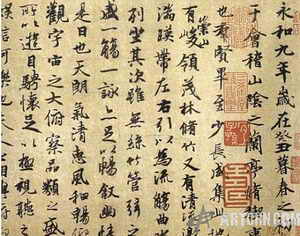 永和九年歲在癸丑暮春之初
于會稽山陰之蘭亭脩稧
也羣賢畢至少長咸集此
崇山
有峻領茂林脩竹又有清
湍暎帶左右引以為流觴曲
列坐其次雖無絲竹管弦
盛一觴一詠亦足以暢敘幽情
是日也天朗氣清惠風和暢
觀宇宙之大俯察品類之盛
所以遊目騁懷足以極視聽之
ARTCHN.COM